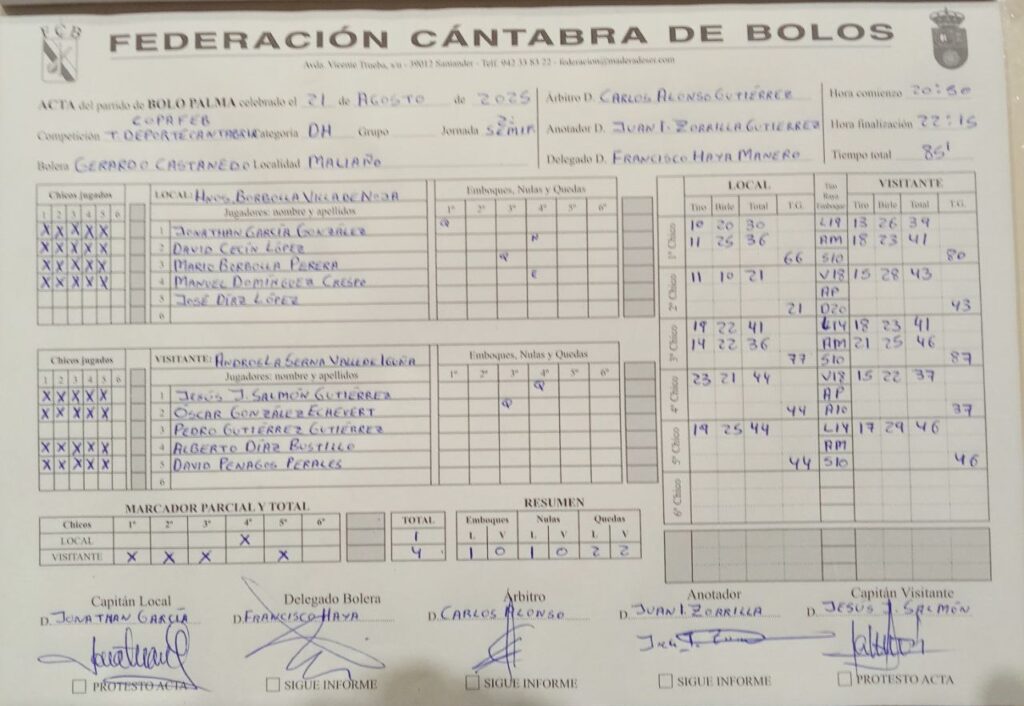 FCB
FEDERACIÓN CÁNTABRA DE BOLOS
Avda. Vicente Trueba, s/n - 39012 Santander - Telf. 942 33 83 22 - federacion@maderadeser.com
ACTA del partido de BOLO PALMA celebrado el 21 de AGOSTO de 2025
COPA FEB
Competición T. DEPORTE CANTABRIA Categoría DH Grupo Jornada 2ª SEMIF.
Bolera GERARDO CASTANEDO Localidad MALIAÑO
Árbitro D. CARLOS ALONSO GUTIÉRREZ
Anotador D. JUAN I. ZORRILLA GUTIERREZ
Delegado D. FRANCISCO HAYA MANERO
Hora comienzo 20:50
Hora finalización 22:15
Tiempo total 85'
Chicos jugados LOCAL: HNOS. BORBOLLA VILLA DE NOJA Emboques, Nulas y Quedas
1 2 3 4 5 6 Jugadores: nombre y apellidos 1º 2º 3º 4º 5º 6º
X X X X X 1 JONATHAN GARCÍA GONZÁLEZ Q
X X X X X 2 DAVID CECÍN LÓPEZ N
X X X X X 3 MARIO BORBOLLA PERERA Q
X X X X X 4 MANUEL DOMÍNGUEZ CRESPO E
5 JOSÉ DÍAZ LÓPEZ
6
Chicos jugados VISITANTE: ANDROS LA SERNA VALLE DE IGUÑA Emboques, Nulas y Quedas
1 2 3 4 5 6 Jugadores: nombre y apellidos 1º 2º 3º 4º 5º 6º
X X X X X 1 JESÚS J. SALMÓN GUTIÉRREZ Q
X X X X X 2 ÓSCAR GONZÁLEZ ECHEVERT Q
3 PEDRO GUTIÉRREZ GUTIÉRREZ
X X X X X 4 ALBERTO DÍAZ BUSTILLO
X X X X X 5 DAVID PENAGOS PERALES
6
LOCAL Tiro Raya Emboque VISITANTE
Tiro Birle Total T.G. Tiro Birle Total T.G.
1º Chico 10 20 30 L19 13 26 39
11 25 36 AM 18 23 41
66 S10 80
2º Chico 11 10 21 V18 15 28 43
AP
21 D20 43
3º Chico 19 22 41 L14 18 23 41
14 22 36 AM 21 25 46
77 S10 87
4º Chico 23 21 44 V18 15 22 37
AP
44 A10 37
5º Chico 19 25 44 L14 17 29 46
AM
44 S10 46
6º Chico
MARCADOR PARCIAL Y TOTAL
Chicos 1º 2º 3º 4º 5º 6º TOTAL
LOCAL X 1
VISITANTE X X X X 4
RESUMEN
Emboques Nulas Quedas
L V L V L V
1 0 1 0 2 2
Capitán Local Delegado Bolera Árbitro Anotador Capitán Visitante
D. JONATHAN GARCÍA D. FRANCISCO HAYA D. CARLOS ALONSO D. JUAN I. ZORRILLA D. JESÚS J. SALMÓN
PROTESTO ACTA SIGUE INFORME SIGUE INFORME SIGUE INFORME PROTESTO ACTA